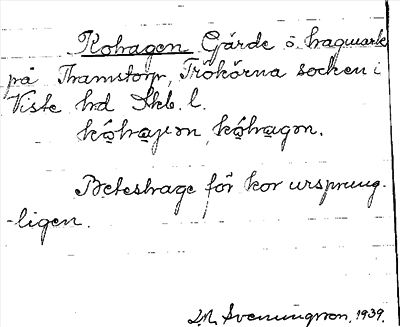 Kohagen Gärde o. hagmark
på Thamstorp, Trökörna socken i
Viste hd Skb. l.
kóhagen, kóhagen.
Beteshage för kor ursprung-
ligen.
Svenungsson, 1939.